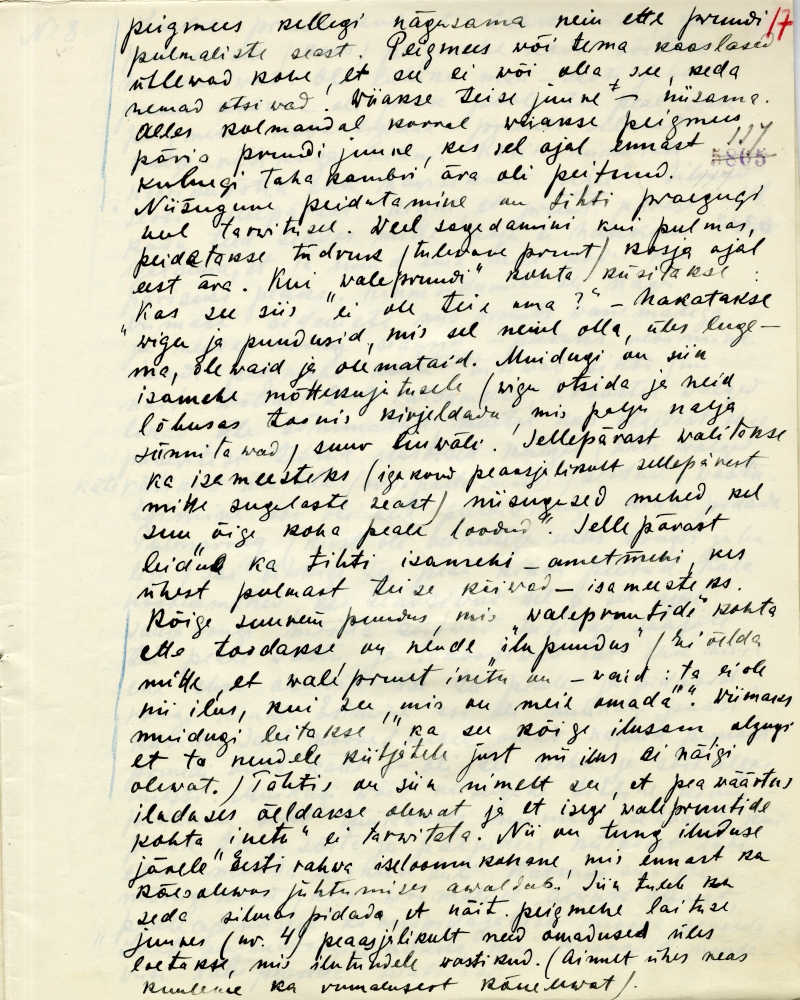 17
peigmees kellegi nägusama nein ette pruudi
pulmaliste seast. Peigmees wõi tema kaaslased
ütlewad kohe, et see ei wõi olla see, keda
nemad otsiwad. Wiiakse teise juure – niisama.
Alles kolmandal korral wiiakse peigmees
117
päris pruudi juure, kes sel ajal ennast
5865
kuhugi taha kambri ära oli peitnud.
Niisugune peidutamine on tihti praegugi
weel tarwitusel. Weel sagedamini kui pulmas,
peidetakse tüdruk (tulewane pruut) kosja ajal
eest ära. Kui "walepruudi" kohta küsitakse:
Kas see siis "ei ole teie oma?" – hakatakse
"wigu ja puudusid, mis sel neiul olla, üles luge-
ma, olewaid ja olemataid. Muidugi on siin
isamehe mõttekujutusele (wigu otsida ja neid
lõbusas toonis kirjeldada, mis palju nalja
sünnitawad) suur liuwäli. Sellepärast walitakse
ka isameesteks (igakord peaasjalikult sellepärast
mitte sugulaste seast) niisugused mehed, kel
suu "õige koha peale loodud". Sellepärast
leidub ka tihti isamehi – ametmehi, kes
ühest pulmast teise käiwad – isameesteks.
Kõige suurem puudus, mis "walepruutide" kohta
ette toodakse on nende "ilupuudus" (Ei öelda
mitte, et walepruut inetu on – waid: ta ei ole
nii ilus, kui see, mis on meie omada". Wiimaks
muidugi leitakse "ka see kõige ilusam, olgugi
et ta nendele kütjatele just nii ilus ei näigi
olewat.) Tähtis on siin nimelt see, et pea wäärtus
iluduses öeldakse olewat ja et isegi walepruutide
kohta "inetu" ei tarwitata. Nii on tung iluduse
järele Eesti rahwa iseloomukohane, mis ennast ka
käesolewas juhtumises awaldab. Siin tuleb ka
seda silmas pidada, et näit. peigmehe laituse
juures (nr. 4) peaasjalikult need omadused üles
loetakse, mis ilutundele wastikud. (Ainult ühes reas
kuuleme ka rumalusest kõnelewat).